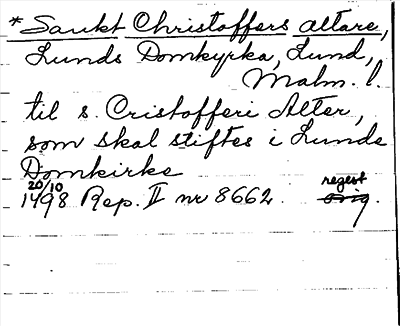 * Sankt Christoffers altare,
Lunds Domkyrka, Lund,
Malm. l.
til s. Cristofferi Alter,
som skal stiftes i Lunds
Domkirke
20/10
1498 Rep. II nr 8662. regest
orig.